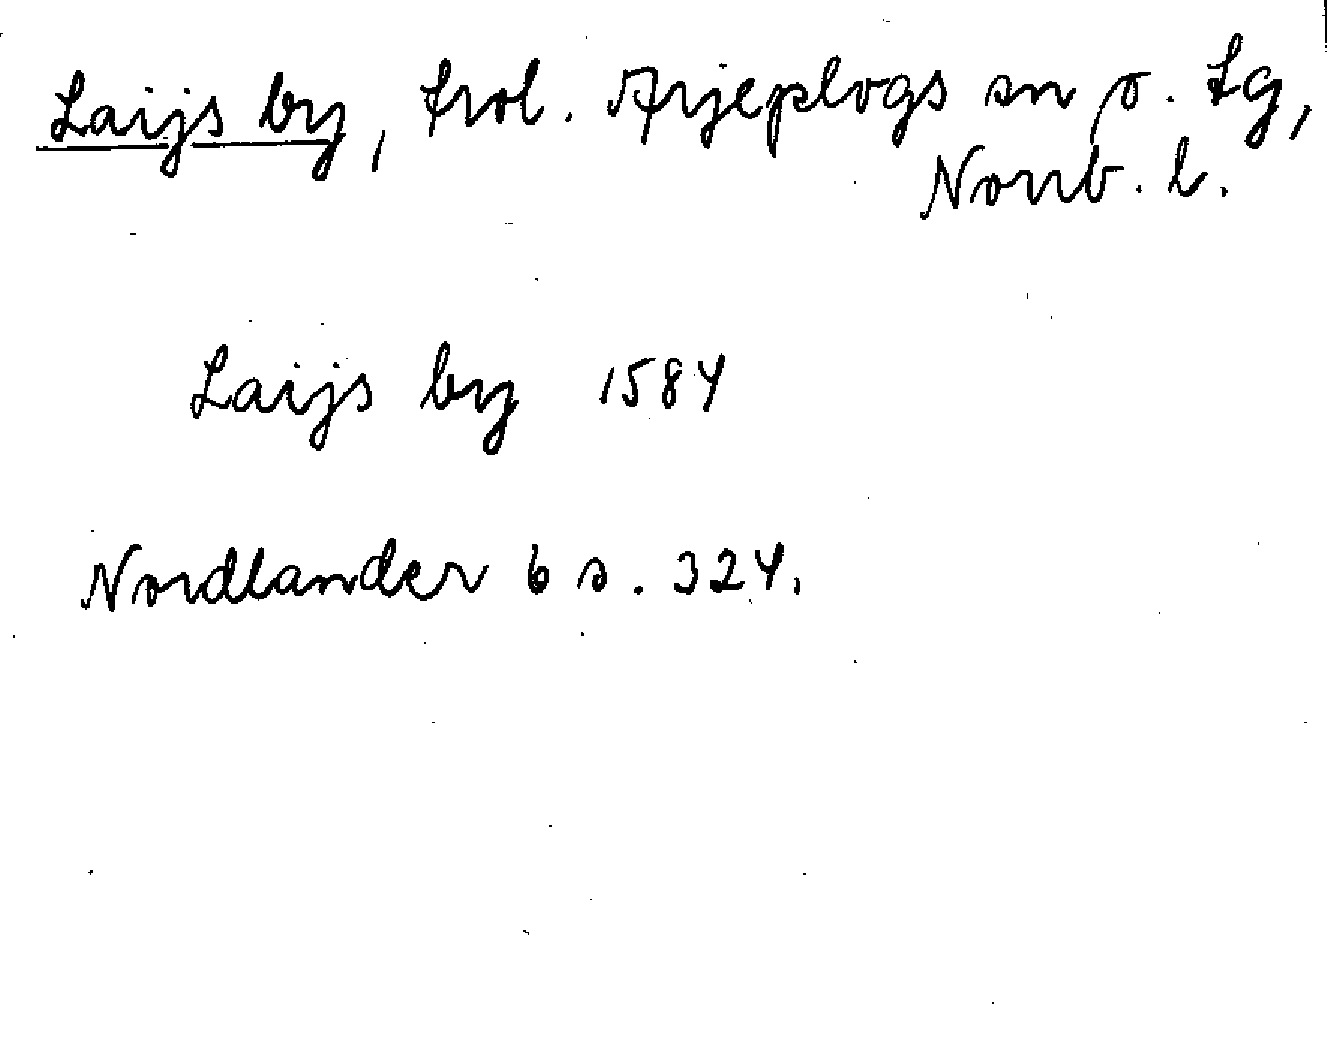 Laijs by, trol. Arjeplogs sn o. Lg,
Norrb. l.
Laijs by 1584
Nordlander 6 s. 324.